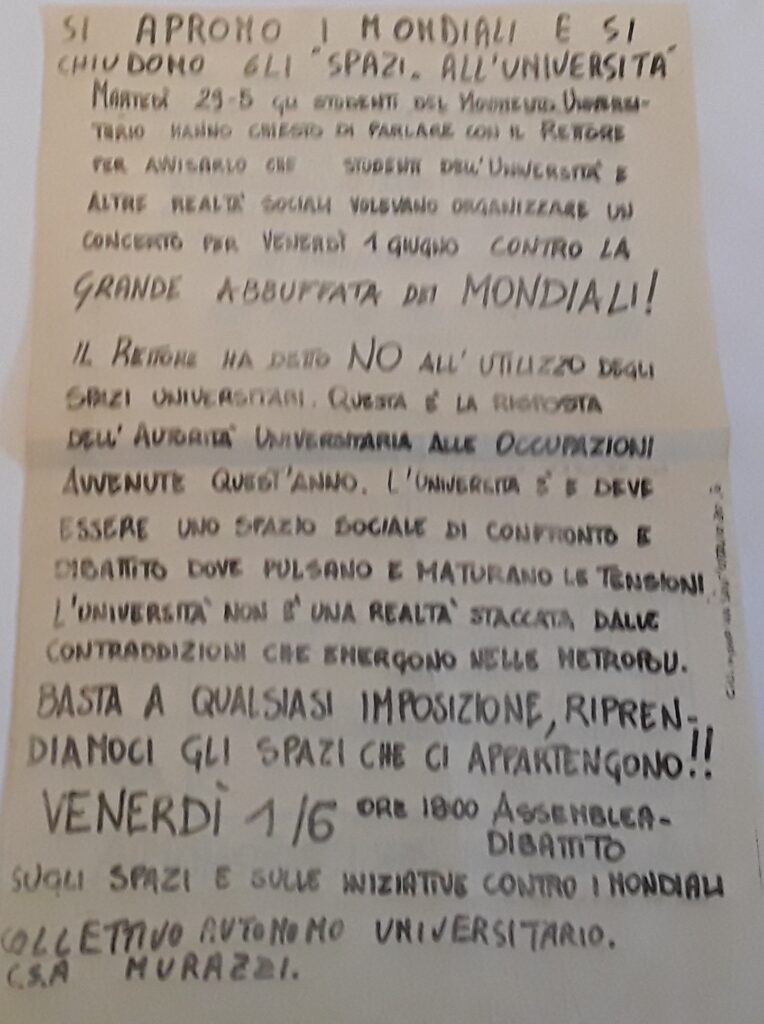 SI APRONO I MONDIALI E SI
CHIUDONO GLI "SPAZI. ALL'UNIVERSITÀ"
MARTEDÌ 29-5 GLI STUDENTI DEL MOVIMENTO UNIVERSI-
TARIO HANNO CHIESTO DI PARLARE CON IL RETTORE
PER AVVISARLO CHE STUDENTI DELL'UNIVERSITÀ E
ALTRE REALTÀ SOCIALI VOLEVANO ORGANIZZARE UN
CONCERTO PER VENERDÌ 1 GIUGNO CONTRO LA
GRANDE ABBUFFATA DEI MONDIALI!
IL RETTORE HA DETTO NO ALL'UTILIZZO DEGLI
SPAZI UNIVERSITARI. QUESTA È LA RISPOSTA
DELL'AUTORITÀ UNIVERSITARIA ALLE OCCUPAZIONI
AVVENUTE QUEST'ANNO. L'UNIVERSITÀ È E DEVE
ESSERE UNO SPAZIO SOCIALE DI CONFRONTO E
DIBATTITO DOVE PULSANO E MATURANO LE TENSIONI.
L'UNIVERSITÀ NON È UNA REALTÀ STACCATA DALLE
CONTRADDIZIONI CHE EMERGONO NELLE METROPOLI.
BASTA A QUALSIASI IMPOSIZIONE, RIPREN-
DIAMOCI GLI SPAZI CHE CI APPARTENGONO!!
VENERDÌ 1/6 ORE 1800 ASSEMBLEA-
DIBATTITO
SUGLI SPAZI E SULLE INIZIATIVE CONTRO I MONDIALI
COLLETTIVO AUTONOMO UNIVERSITARIO.
C.S.A MURAZZI.